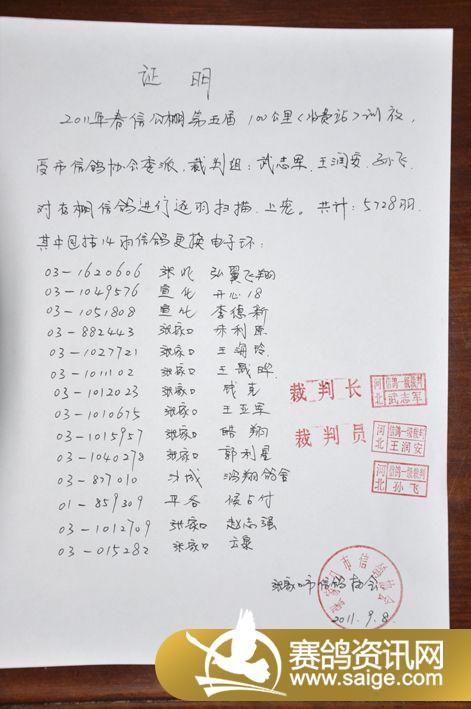 证 明
2011年春信公棚第五届100公里(收费站)训放,
受市信鸽协会委派,裁判组:武志军.王润安.孙飞.
对在棚信鸽进行逐羽扫描.上笼。共计:5728羽.
其中包括14羽信鸽更换电子环:
03-1620606 张北 弘翼飞翔
03-1049576 宣化 开心18
03-1051808 宣化 李德新
03-882443 张家口 朱利原
03-1027721 张家口 王海玲
03-1011102 张家口 王晨晔
03-1012023 张家口 成克
03-1010675 张家口 王亚军
03-1015957 张家口 皓翔
03-1040278 张家口 郭利星
03-837010 鸿翔鸽舍
01-859309 平谷 候占付
03-1012709 张家口 赵志强
03-015282 张家口
裁判长 河北 信鸽一级裁判 武志军
裁判员 河北 信鸽一级裁判 王润安
河北 信鸽一级裁判 孙飞
张家口市信鸽协会
2011.9.8.
赛鸽资讯网
www.saige.com